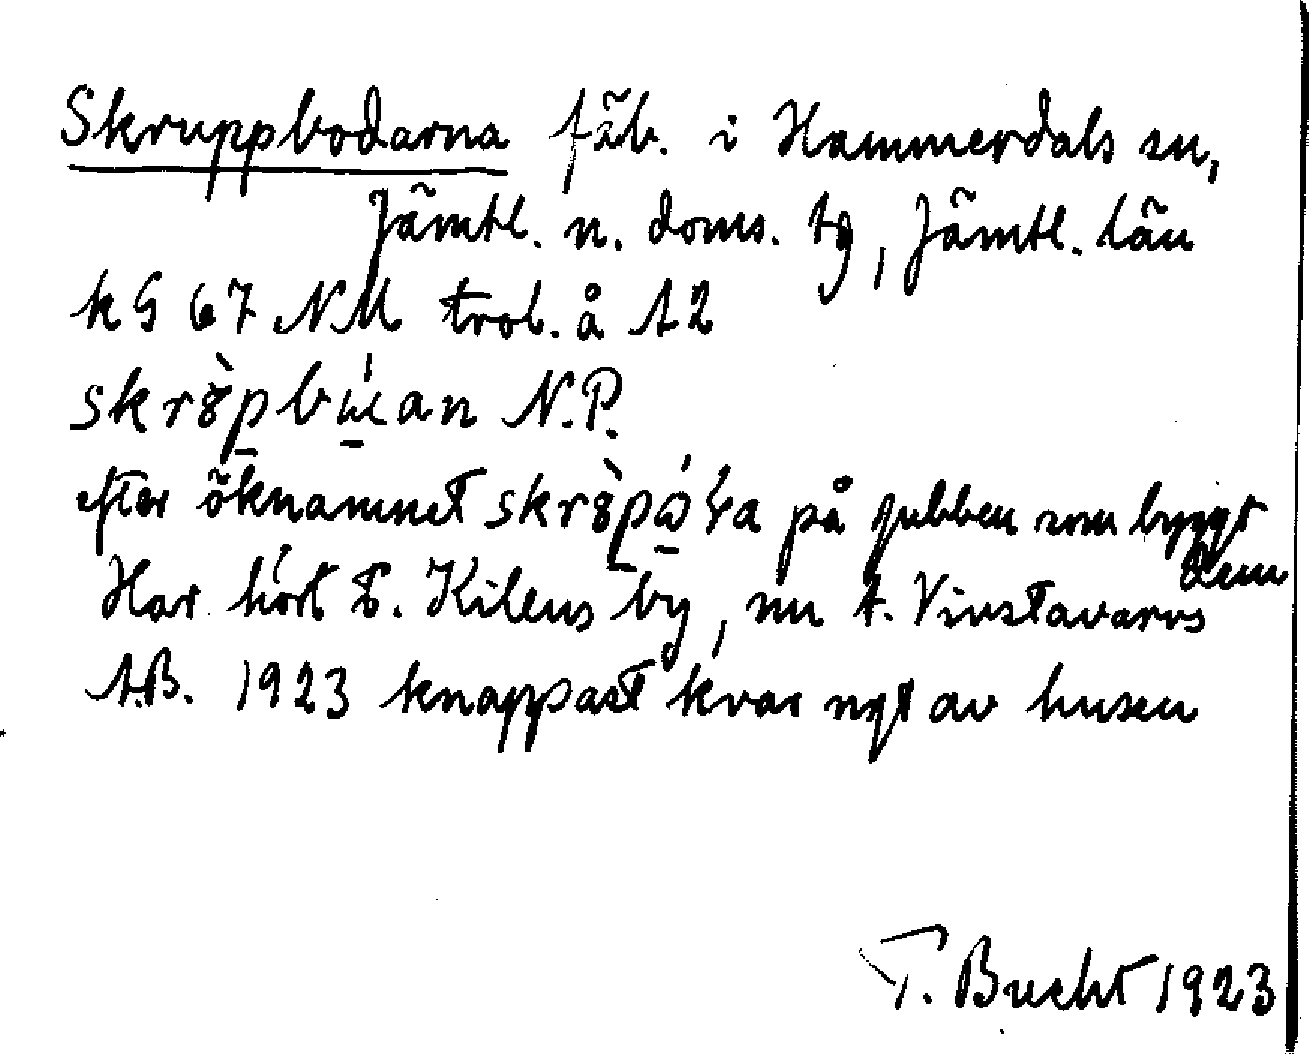 Skruppbodarna fäb. i Hammerdals sn,
Jämtl. n. doms. tg, Jämtl. län
kG 67 NM trol. å 12
N.P.
efter öknamnet på gubben som byggt dem
Har hört t. Kilens by, nu t. Vivstavarvs
A.B. 1923 knappast kvar ngt av husen
T. Bucht 1923